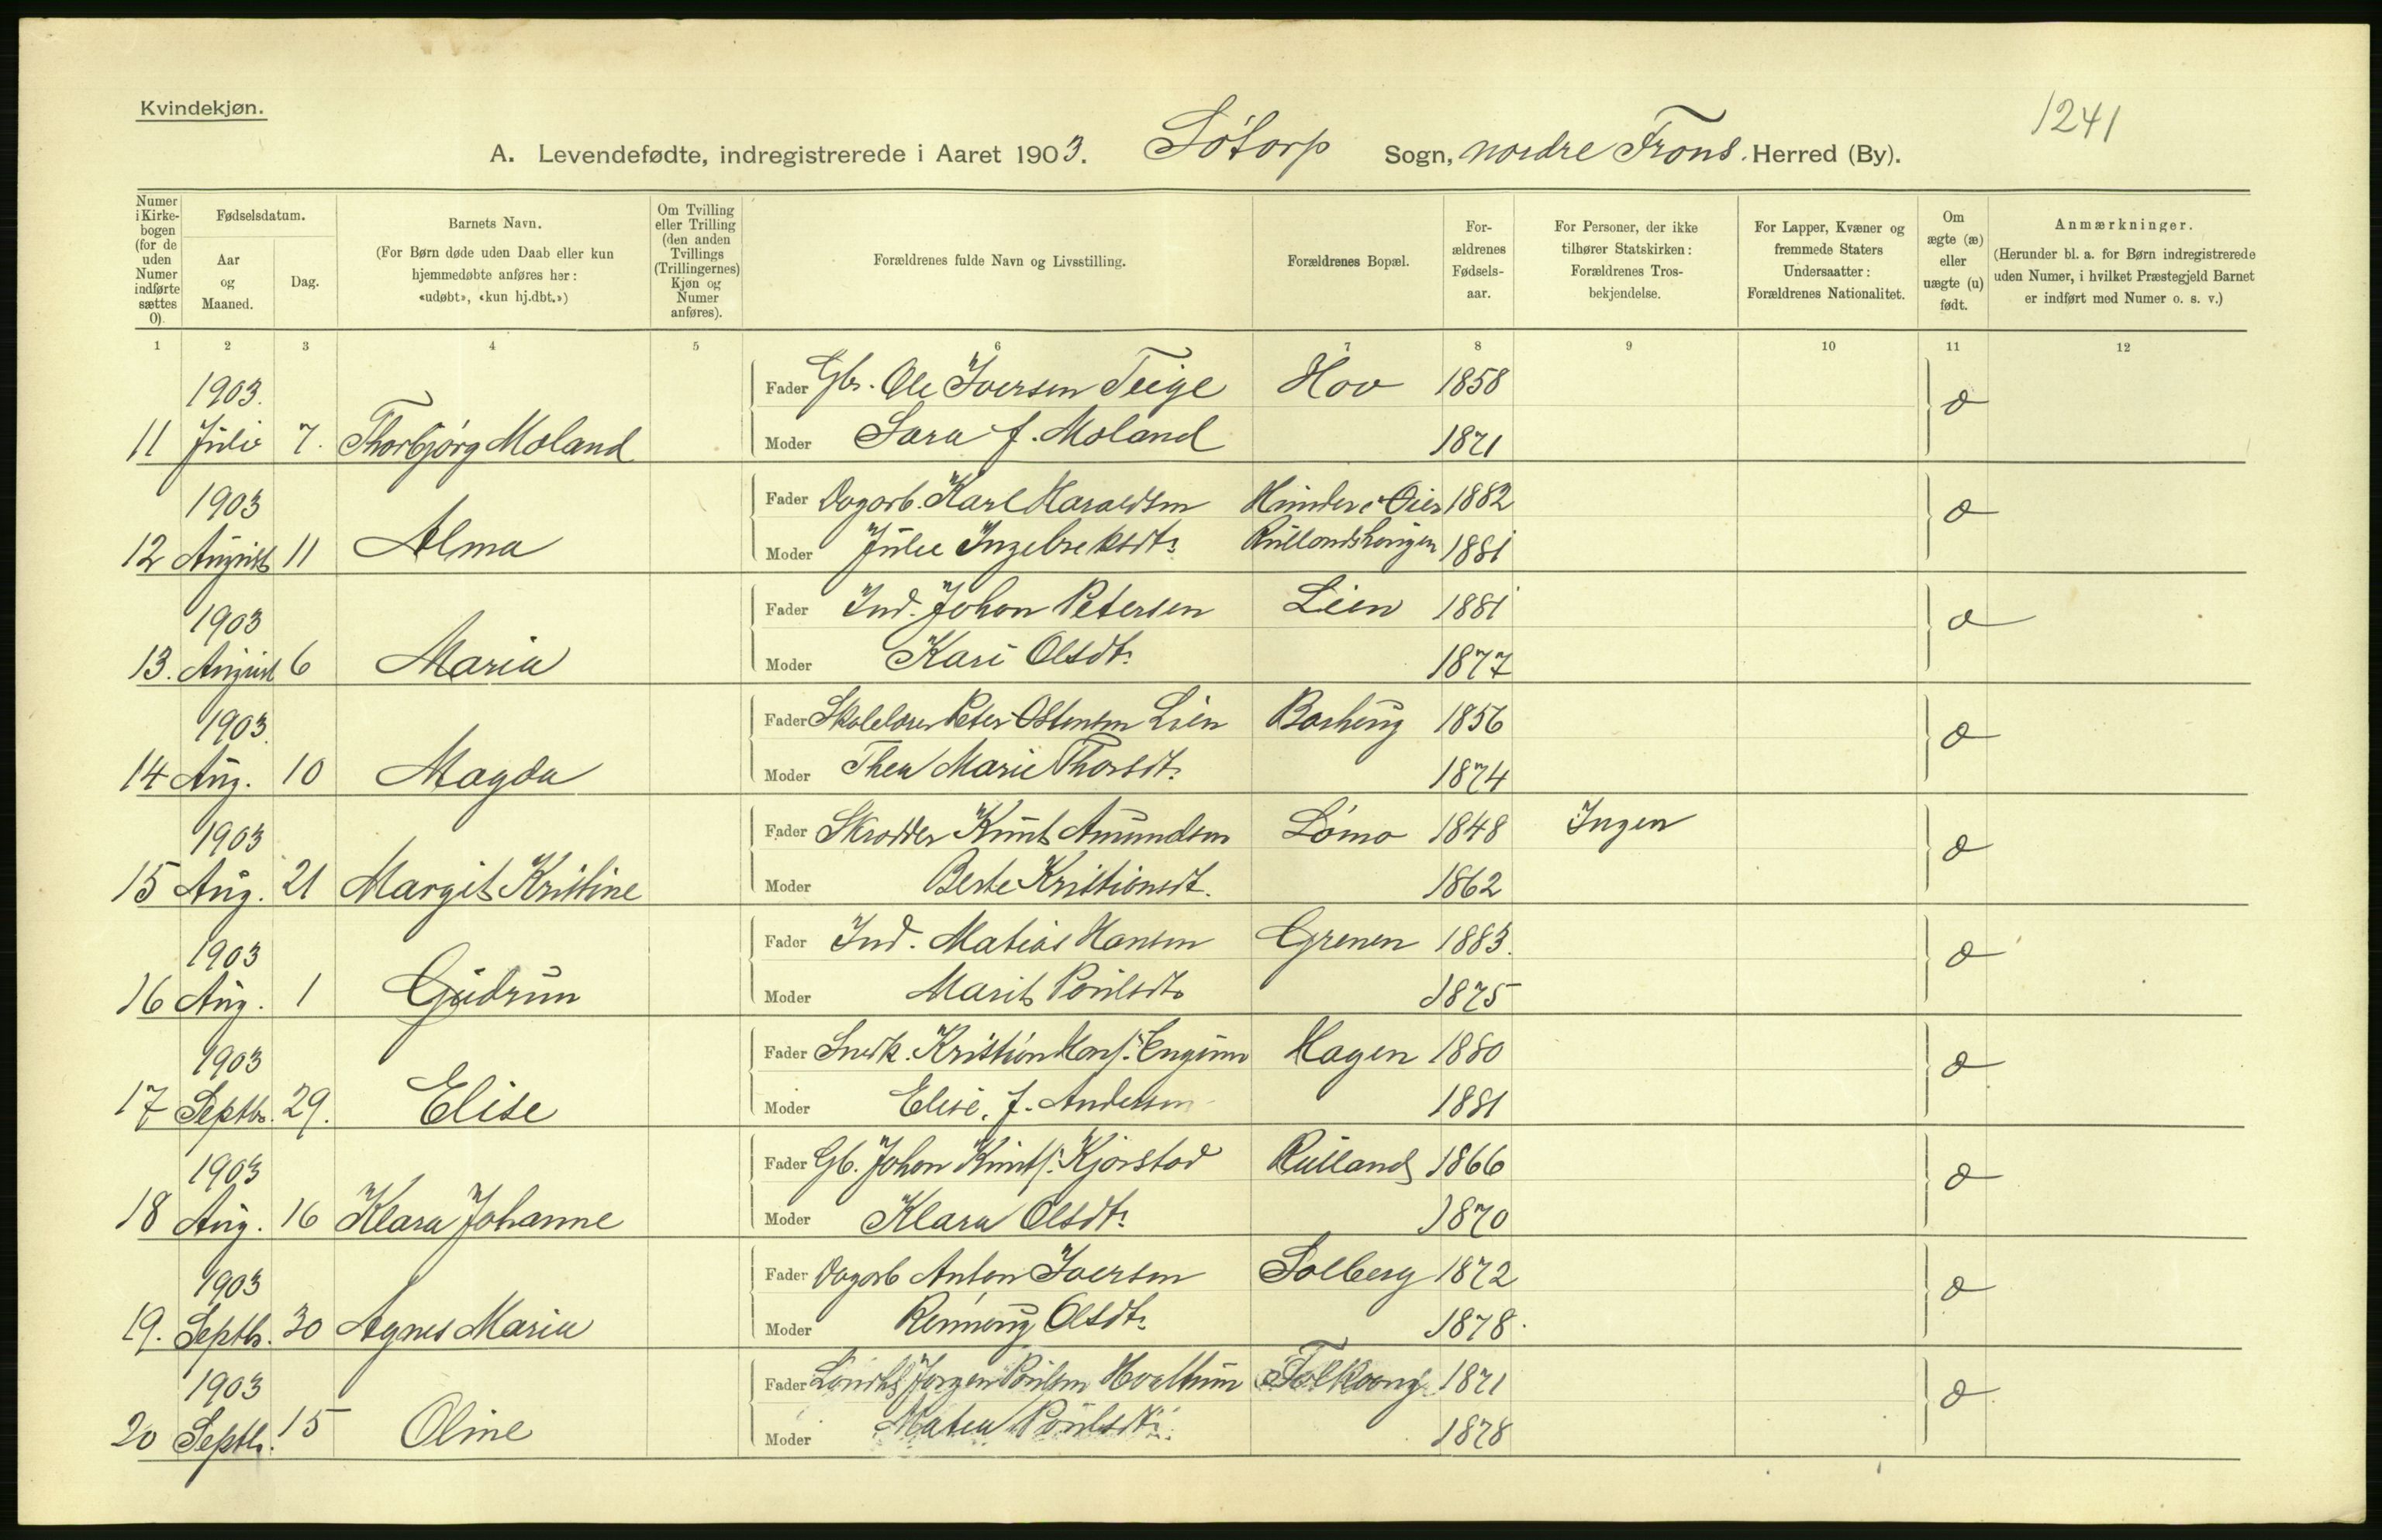 Kvindekjøn.
1241
A. Levendefødte, indregistrerede i Aaret 1903. Sótorp Sogn, nordre Frons. Herred (By).
Numer i Kirkebogen (for de uden Numer indførte sættes 0).
Fødselsdatum.
Aar og Maaned.
Dag.
Barnets Navn.
(For Børn døde uden Daab eller kun hjemmedøbte anføres her: «udøbt», «kun hj.dbt.»)
Om Tvilling eller Trilling (den anden Tvillings (Trillingernes) Kjøn og Numer anføres).
Forældrenes fulde Navn og Livsstilling.
Forældrenes Bopæl.
Forældrenes Fødselsaar.
For Personer, der ikke tilhører Statskirken: Forældrenes Trosbekjendelse.
For Lapper, Kvæner og fremmede Staters Undersaatter: Forældrenes Nationalitet.
Om ægte (æ) eller uægte (u) født.
Anmærkninger.
(Herunder bl. a. for Børn indregistrerede uden Numer, i hvilket Præstegjeld Barnet er indført med Numer o. s. v.)
1 2 3 4 5 6 7 8 9 10 11 12
1903. Fader Gbr. Ole Iversen Teige Hov 1858 æ
11 Juli 7. Thorbjørg Moland Moder Sara f. Moland 1871
1903 Fader Dagarb. Karl Haraldsen Hunder i Øier 1882 æ
12 August 11 Alma Moder Julie Ingebrektsdt: 1881
1903 Fader Ind. Johan Petersen Lien 1881 æ
13. August 6 Maria Moder Kari Olsdt: 1877
1903. Fader Skolelærer Peter Ostensen Lien 1856 æ
14 Aug. 10 Magda Moder Thea Marie Thorsdt: 1874
1903 Fader Skrædder Knut Amundsen Lómo 1848 Ingen æ
15 Aug. 21 Margit Kristine Moder Berte Kristiansdt. 1862
1903 Fader Ind. Matias Hansen Grenen 1883. æ
16 Aug. 1 Gudrun Moder Marit Poulsdt: 1875
1903 Fader Snedk. Kristian Hans. Hagen 1880 æ
17 Septbr. 29. Elise Moder Elise, f. Andersen 1881
1903 Fader Gb. Johan Knuts. Kjorstad Rulland 1866 æ
18 Aug. 16 Klara Johanne Moder Klara Olsdt: 1870
1903 Fader Dagarb Anton Iversen Solberg 1872 æ
19. Septbr. 30 Agnes Maria Moder Rønnaug Olsdt: 1878.
1903 Fader Jørgen Poulsen Hvattum 1871 æ
20 Septbr. 15 Oline Moder Matea Poulsdt: 1878